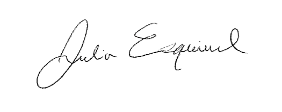 Julia Esquivel